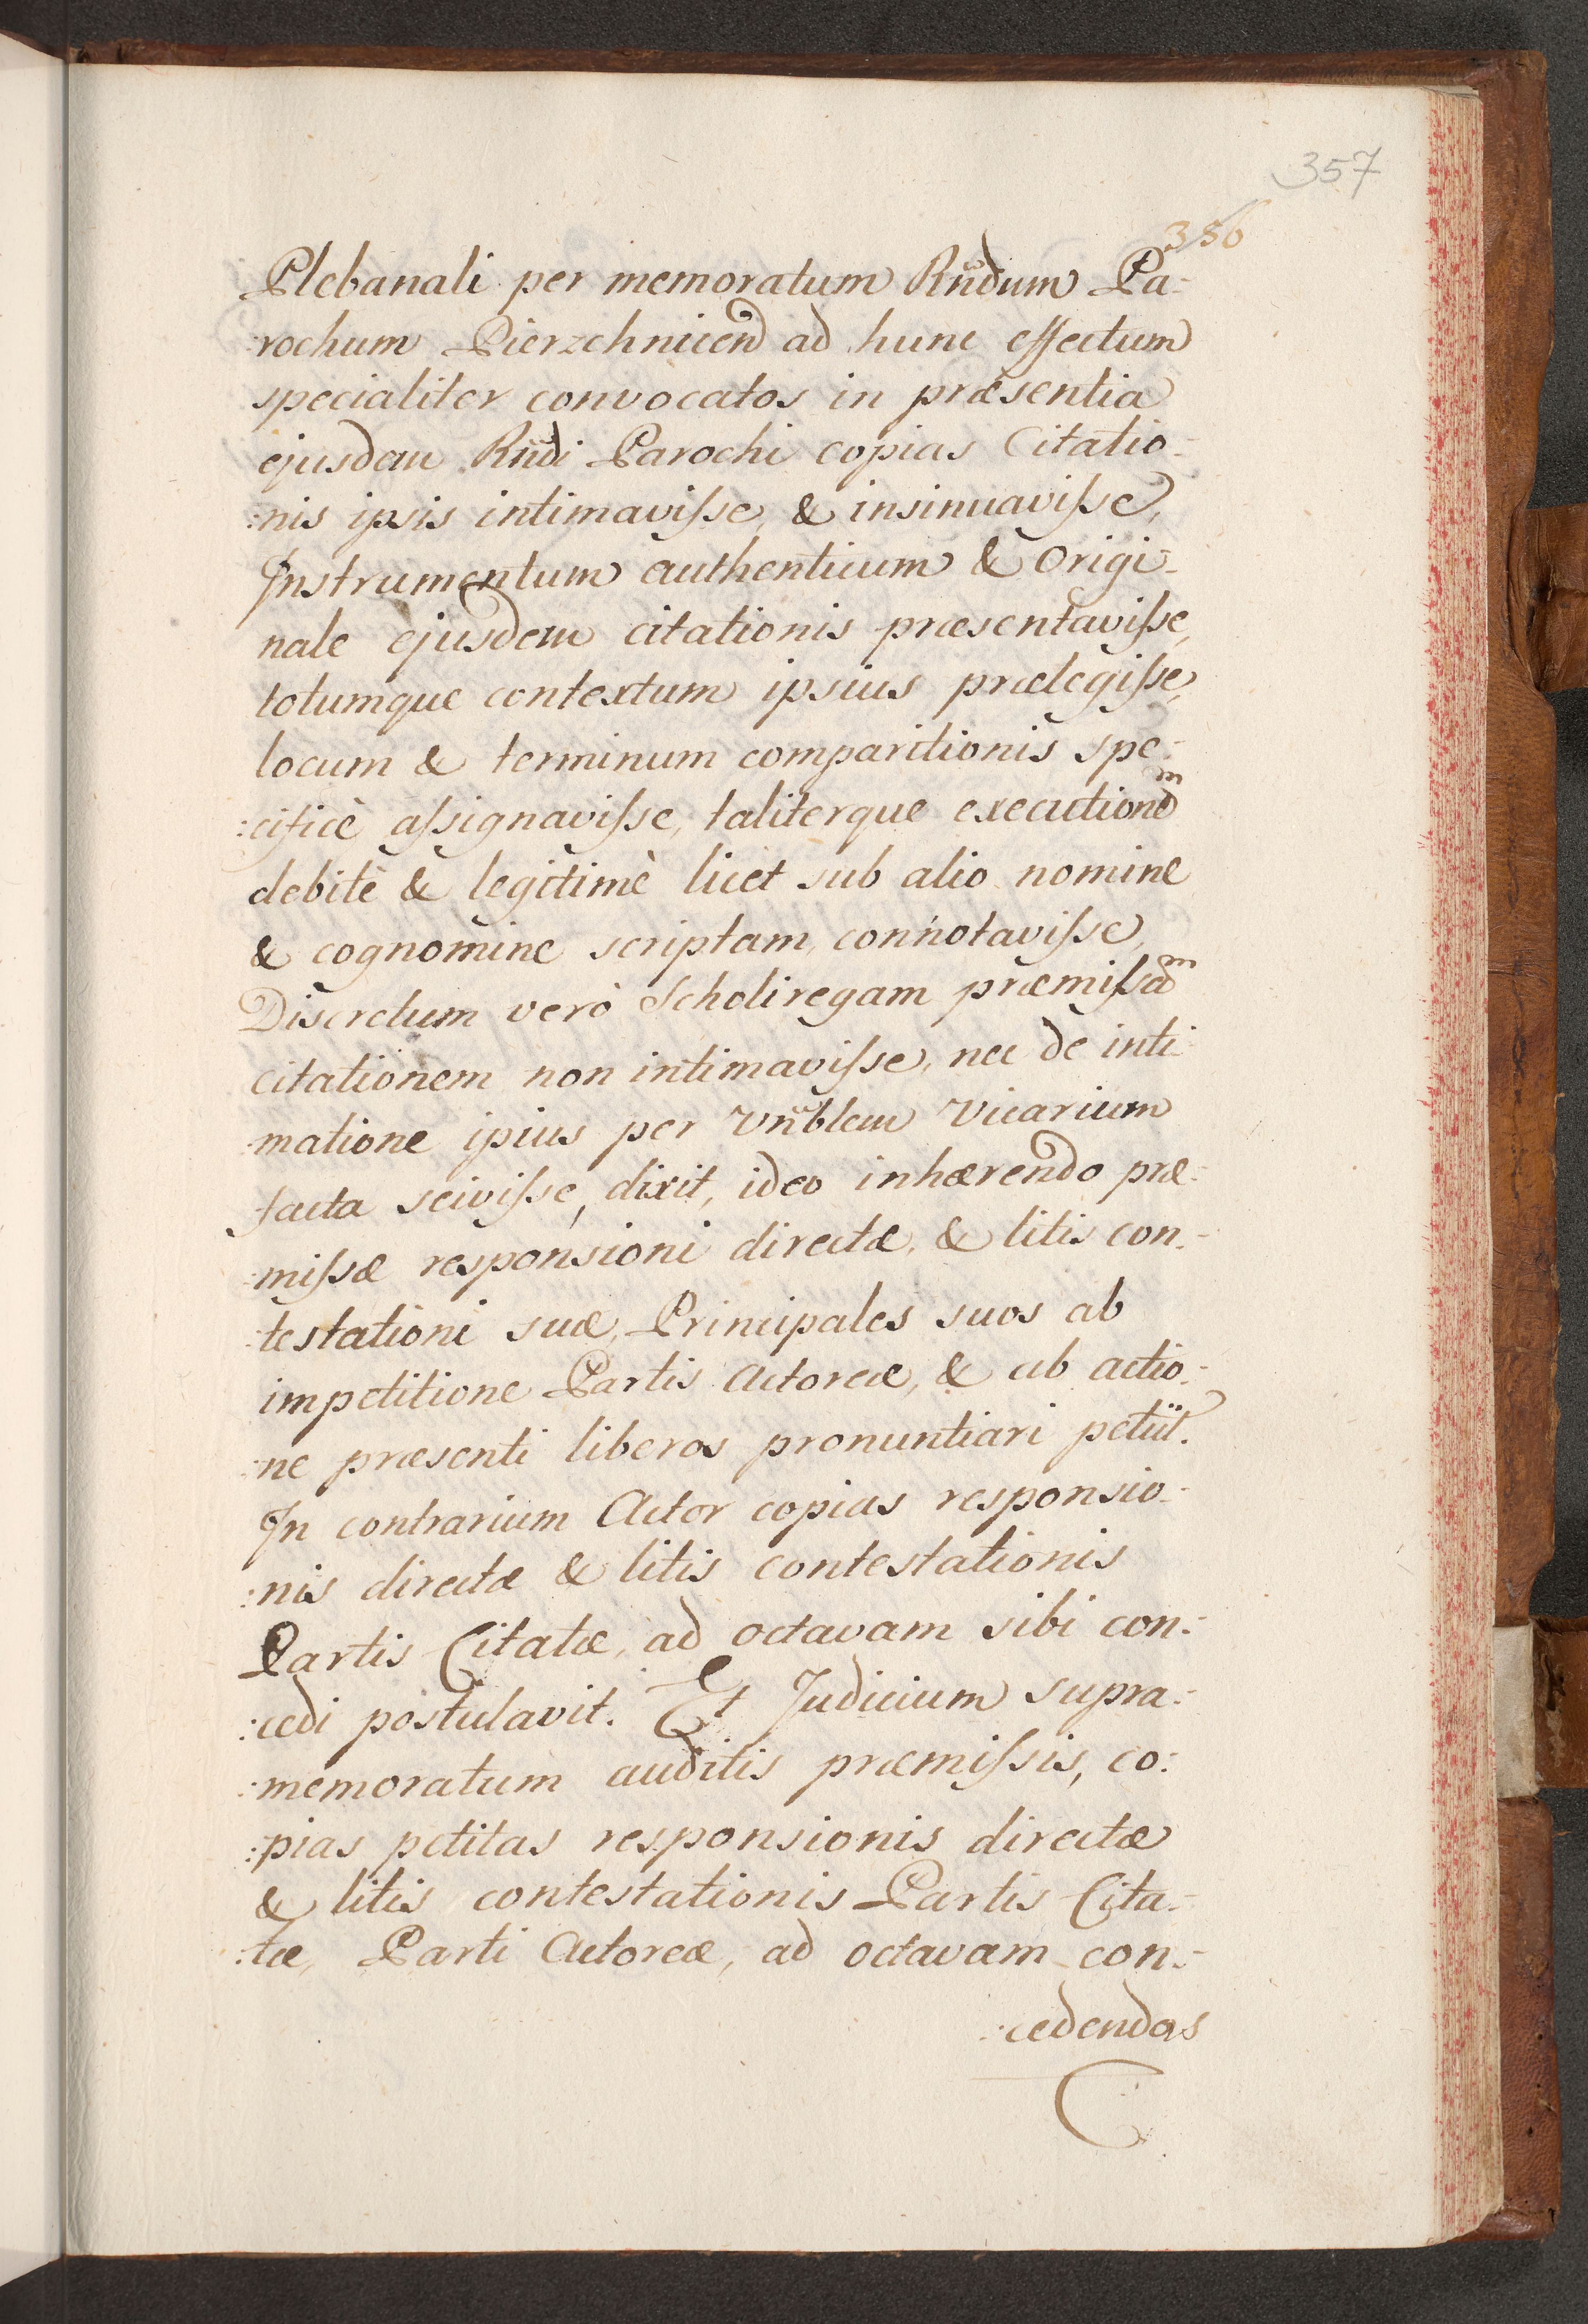 357
356
Plebanali per memoratum Rñdum Pa-
:rochum Pierzchnicen ad hunc effectum
specialiter convocatos in præsentia
ejusdem Rñdi Parochi copias Citatio-
:nis ipsis intimaviſse, & insinuaviſse,
Instrumentum authenticum & Origi-
nale ejusdem citationis præsentaviſse,
totumque contextum ipsius prælegiſse,
locum & terminum comparitionis spe-
:cificè aſsignaviſse, taliterque executionẽ
debitè & legitimè licet sub alio nomine
& cognomine scriptam, connotaviſse,
Discretum verò Scholiregam præmiſsã
citationem non intimaviſse, nec de inti-
matione ipius per Vñblem Vicarium
facta sciviſse, dixit, ideo inhærendo præ-
:miſsæ responsioni directæ, & litis con-
:testationi suæ, Principales suos ab
impetitione Partis Actoreæ, & ab actio-
:ne præsenti liberos pronuntiari petiit.
In contrarium Actor copias responsio-
:nis directæ & litis contestationis
Partis Citatæ, ad octavam sibi con-
:cedi postulavit. Et Judicium supra-
:memoratum auditis præmiſsis, co-
:pias petitas responsionis directæ
& litis contestationis Partis Cita-
:tæ, Parti Actoreæ, ad octavam con-
:cedendas